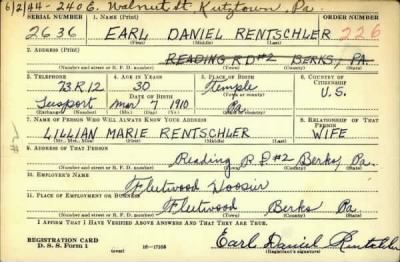 6/2/44 - 240 E. Walnut St. Kutztown, Pa.
SERIAL NUMBER 1. NAME (Print) ORDER NUMBER
2636 EARL DANIEL RENTSCHLER 226
(First) (Middle) (Last)
2. ADDRESS (Print)
READING R D #2 BERKS, PA.
(Number and street or R. F. D. number) (Town) (County) (State)
3. TELEPHONE 4. AGE IN YEARS 5. PLACE OF BIRTH 6. COUNTRY OF CITIZENSHIP
73R12 30 Temple U.S.
DATE OF BIRTH (Town or county)
Mar 7 1910 Pa
(Exchange) (Number) (Mo.) (Day) (Yr.) (State or country)
7. NAME OF PERSON WHO WILL ALWAYS KNOW YOUR ADDRESS 8. RELATIONSHIP OF THAT PERSON
LILLIAN MARIE RENTSCHLER WIFE
(Mr., Mrs., Miss) (First) (Middle) (Last)
9. ADDRESS OF THAT PERSON
Reading R.D. #2 Berks, Pa.
(Number and street or R. F. D. number) (Town) (County) (State)
10. EMPLOYER'S NAME
Fleetwood Hosier
11. PLACE OF EMPLOYMENT OR BUSINESS
Fleetwood Berks Pa
(Number and street or R. F. D. number) (Town) (County) (State)
I AFFIRM THAT I HAVE VERIFIED ABOVE ANSWERS AND THAT THEY ARE TRUE.
REGISTRATION CARD
D. S. S. Form 1 (over) 16-17105 Earl Daniel Rentschler
(Registrant's signature)